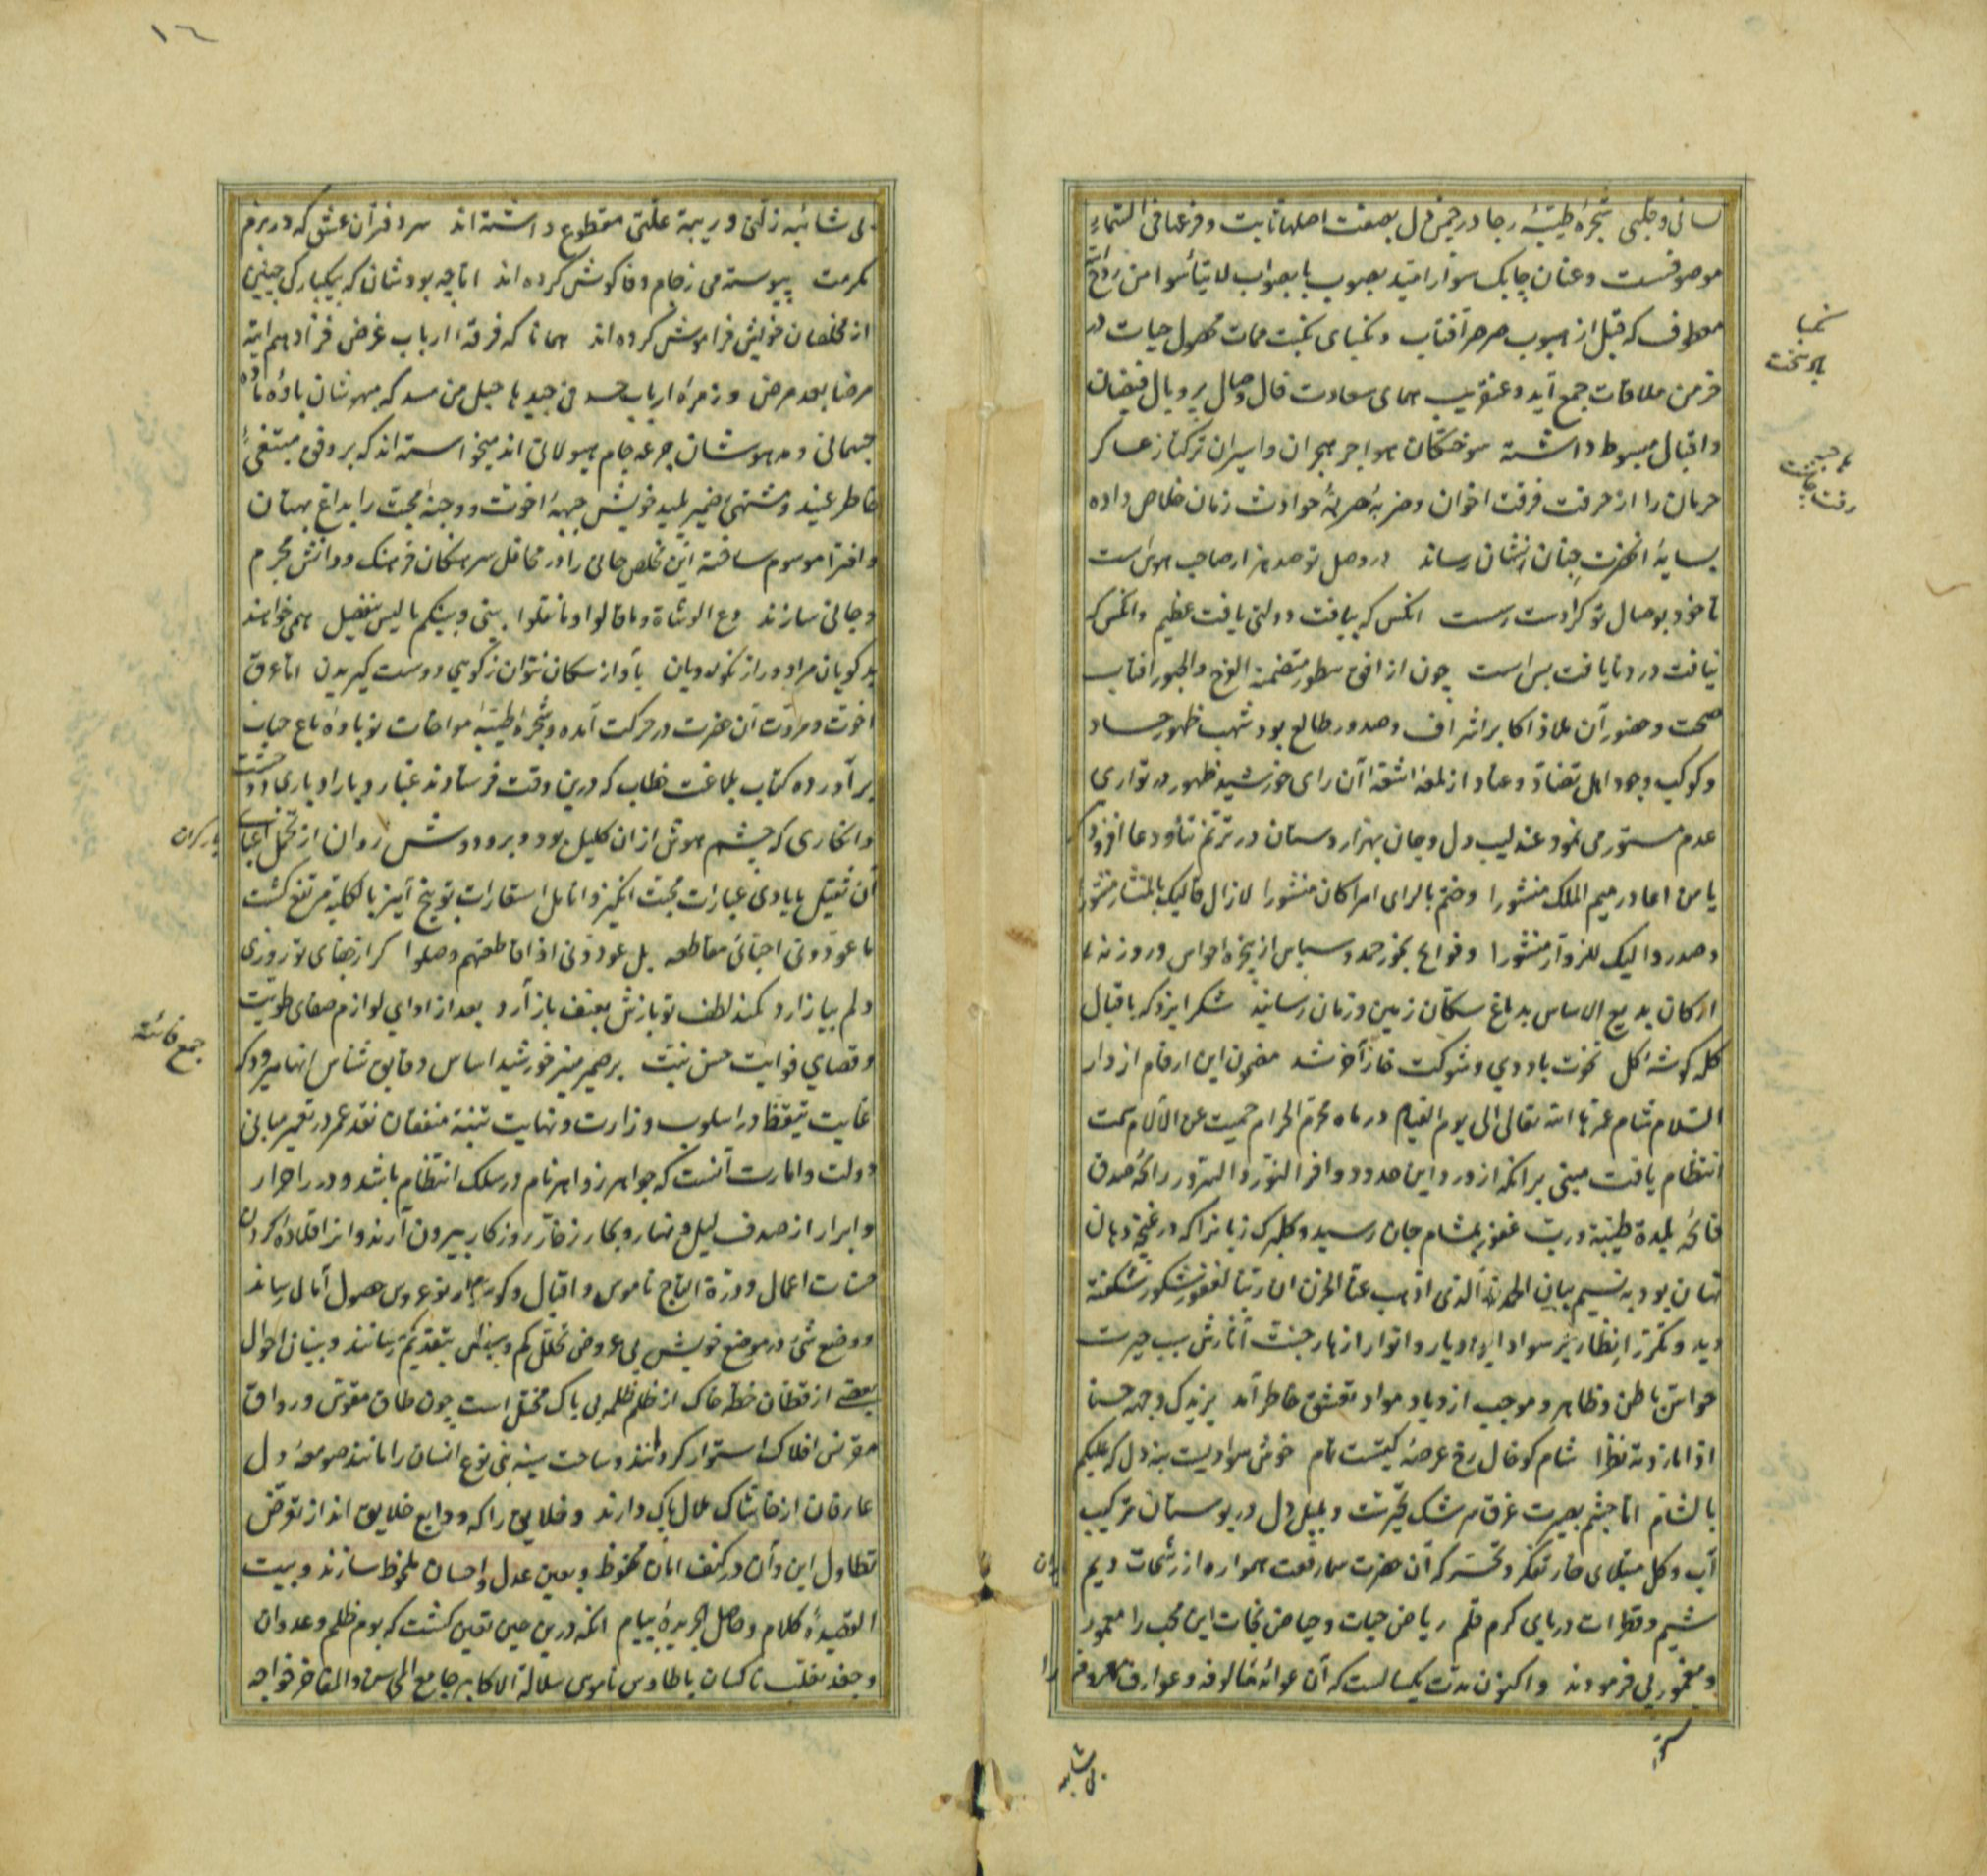 لسانی و جلی شجرهٔ طیبهٔ رجا در چمن دل بصفت اصلها ثابت و فرعها فی السماء
موصوفست و عنان چابک سوار امید بصوب با صواب لا تیأسوا من روح الله
معطوف که قبل از هبوب صرصر آفتاب و نکبای نکبت ممات محصول حیات در
خرمن ملاقات جمع آید و عنقریب همای سعادت فال وصال پر و بال فیضان
و اقبال مبسوط داشته سوختکان هواجر هجران و اسیران ترکتاز عساکر
حرمان را از حرقت فرقت اخوان و ضربهٔ حربهٔ حوادث زمان خلاص داده
بسایهٔ انحضرت جنان نشان رساند در وصل تو صد هزار صاحب هوس است
تا خود بوصال تو کرا دست رست انکس که بیافت دولتی یافت عظیم وانکس که
نیافت درد نایافت بس است چون از افق سطور متضمنة الفرح والحبور افتاب
صحت و حضور آن ملاذ اکابر اشراف و صدور طالع بود شهب ظهور حساد
و کوکب وجود اهل تضاد و عناد از لمعه اشعه آن رای خورشید ظهور در تواری
عدم مستور می نمود عندلیب دل و جان بهزار دستان در ترنم ثنا و دعا افزود
یا من اعاد رمیم الملک منشورا وضم بالرای امرا کان منشورا لا زال
وصدر والیک للزوار منشورا و فوایح بخور حمد و سپاس از مجمره حواس در روزنهٔ
ارکان بدیع الاساس بدماغ سکان زمین و زمان رسانید شکر ایزد که باقبال
کله کوشهٔ کل نخوت باد دی و شوکت خار آخر شد مضمون این ارقام از دار
السلام شام عمرها الله تعالی الی یوم القیام در ماه محرم الحرام حمیت عن الآلام سمت
انتظام یافت مبنی بر انکه از ورود این حدود وافر النور والسرور رائحه صدق
فاتحهٔ بلدة طیبة ورب غفور بمشام جان رسید و کلبرک زبانرا که در غنچهٔ دهان
نهان بود به نسیم بیان الحمد لله الذی اذهب عنا الحزن ان ربنا لغفور شکور شکفته
دید و تکرر انظار بر سواد این دیار و انوار ازهار جنت آثارش سبب حیرت
حواس باطن و ظاهر و موجب ازدیاد مواد تعشق خاطر آمد یزیدک وجهه حسنا
اذا ما زدته نظرا شام کو خال رخ عرصهٔ کیتیست تمام خوش سوادیست بنه دل که علیکم
بالشام اما چشم بصیرت غرق سرشک تحیرست و بلبل دل در بوستان ترکیب
آب و کل مبتلای خار تفکر و تحسر که آن حضرت سما رفعت همواره از رشحات دیم
شیم و قطرات دریای کرم قلم ریاض حیات و حیاض نجات این محب را معمور
و مغمور می فرمودند و اکنون مدت یکسالست که آن عوائد مألوفه و عوارف معروفه
نکبا
باد سخت
بی شایبه
١٤
بی شائبه زلتی و ریبهٔ علتی مقطوع داشته اند سر دفتران عشق که در بزم
مکرمت پیوسته می ز جام وفا کوش کرده اند اما چه بودشان که بیکبارکی چنین
از مخلصان خویش فراموش کرده اند همانا که فرقهٔ ارباب غرض فزادهم الله
مرضا بعد مرض و زمرهٔ ارباب حسد فی جیدها حبل من مسد که مهوشان بادهٔ ناده
جسمانی و مدهوشان جرعهٔ جام هیولانی اند میخواسته اند که بر وفق مبتغی
خاطر عنید و مشتهی ضمیر پلید خویش جبههٔ اخوت و وجنهٔ محبت را بداغ بهتان
و افترا موسوم ساخته این مخلص جانی را در محافل سرهنکان فرهنک و دانش مجرم
و جانی سازند دع الوشاة وما قالوا وما نقلوا بینی وبینکم ما لیس ینفصل همی خواهند
بدکویان مرا دور از نکورویان بآواز سکان نتوان ز کوی دوست کیریدن اما عرق
اخوت و مروت آن حضرت در حرکت آمده و شجرهٔ طیبهٔ مواخات نوباوهٔ باغ جنان
برآورده کتاب بلاغت خطاب که درین وقت فرستادند غبار و بار ادباری وحشت
و انکاری که چشم هوش ازان کلیل بود و بر و دوش روان از تحمل اعبای
آن ثقیل بایادی عبارات محبت انکیز و انامل استعارات توبیخ آمیز بالکلیه مرتفع کشت
ما عودونی احبائی مقاطعه بل عودونی اذا قاطعتهم وصلوا کر از جفای تو روزی
دلم بیازارد کمند لطف تو بازش بعنف باز آرد بعد از ادای لوازم صفای طویت
و قصای فوایت حسن نیت بر ضمیر منیر خورشید اساس دقایق شناس انها میرود که
غایت تیقظ در اسلوب وزارت و نهایت تنبه منفقان نقد عمر در تعمیر مبانی
دولت و امارت آنست که جواهر زواهر نام در سلک انتظام باشد و درر احرار
و ابرار از صدف لیل و نهار و بحار زخار روزکار بیرون آرند و انرا قلادهٔ کردن
حسنات اعمال و درة التاج ناموس و اقبال و کوشوار نو عروس حصول آمال رساند
و وضع شیء در موضع خویش بی عروض تخلل کم و بیش بتقدیم رسانند و بنیان احوال
بعضی از قطان خطهٔ خاک از ظلم ظلمهٔ بی باک مختل است چون طاق مقوس و رواق
مقرنس افلاک استوار کردانند و ساحت سینهٔ بنی نوع انسان را مانند صومعهٔ دل
عارفان از خاشاک ملال پاک دارند و خلایق را که ودایع خلایق اند از تعرض
تطاول این و آن در کنف امان محفوظ و بعین عدل و احسان ملحوظ سازند و بیت
القصیدهٔ کلام و حاصل الجریدهٔ پیام انکه درین حین تعین کشت که بوم ظلم و عدوان
و جغد تغلب ناکسان با طاوس ناموس سلالة الاکابر جامع المحاسن والمفاخر خواجه
بار کران
جمع فائته